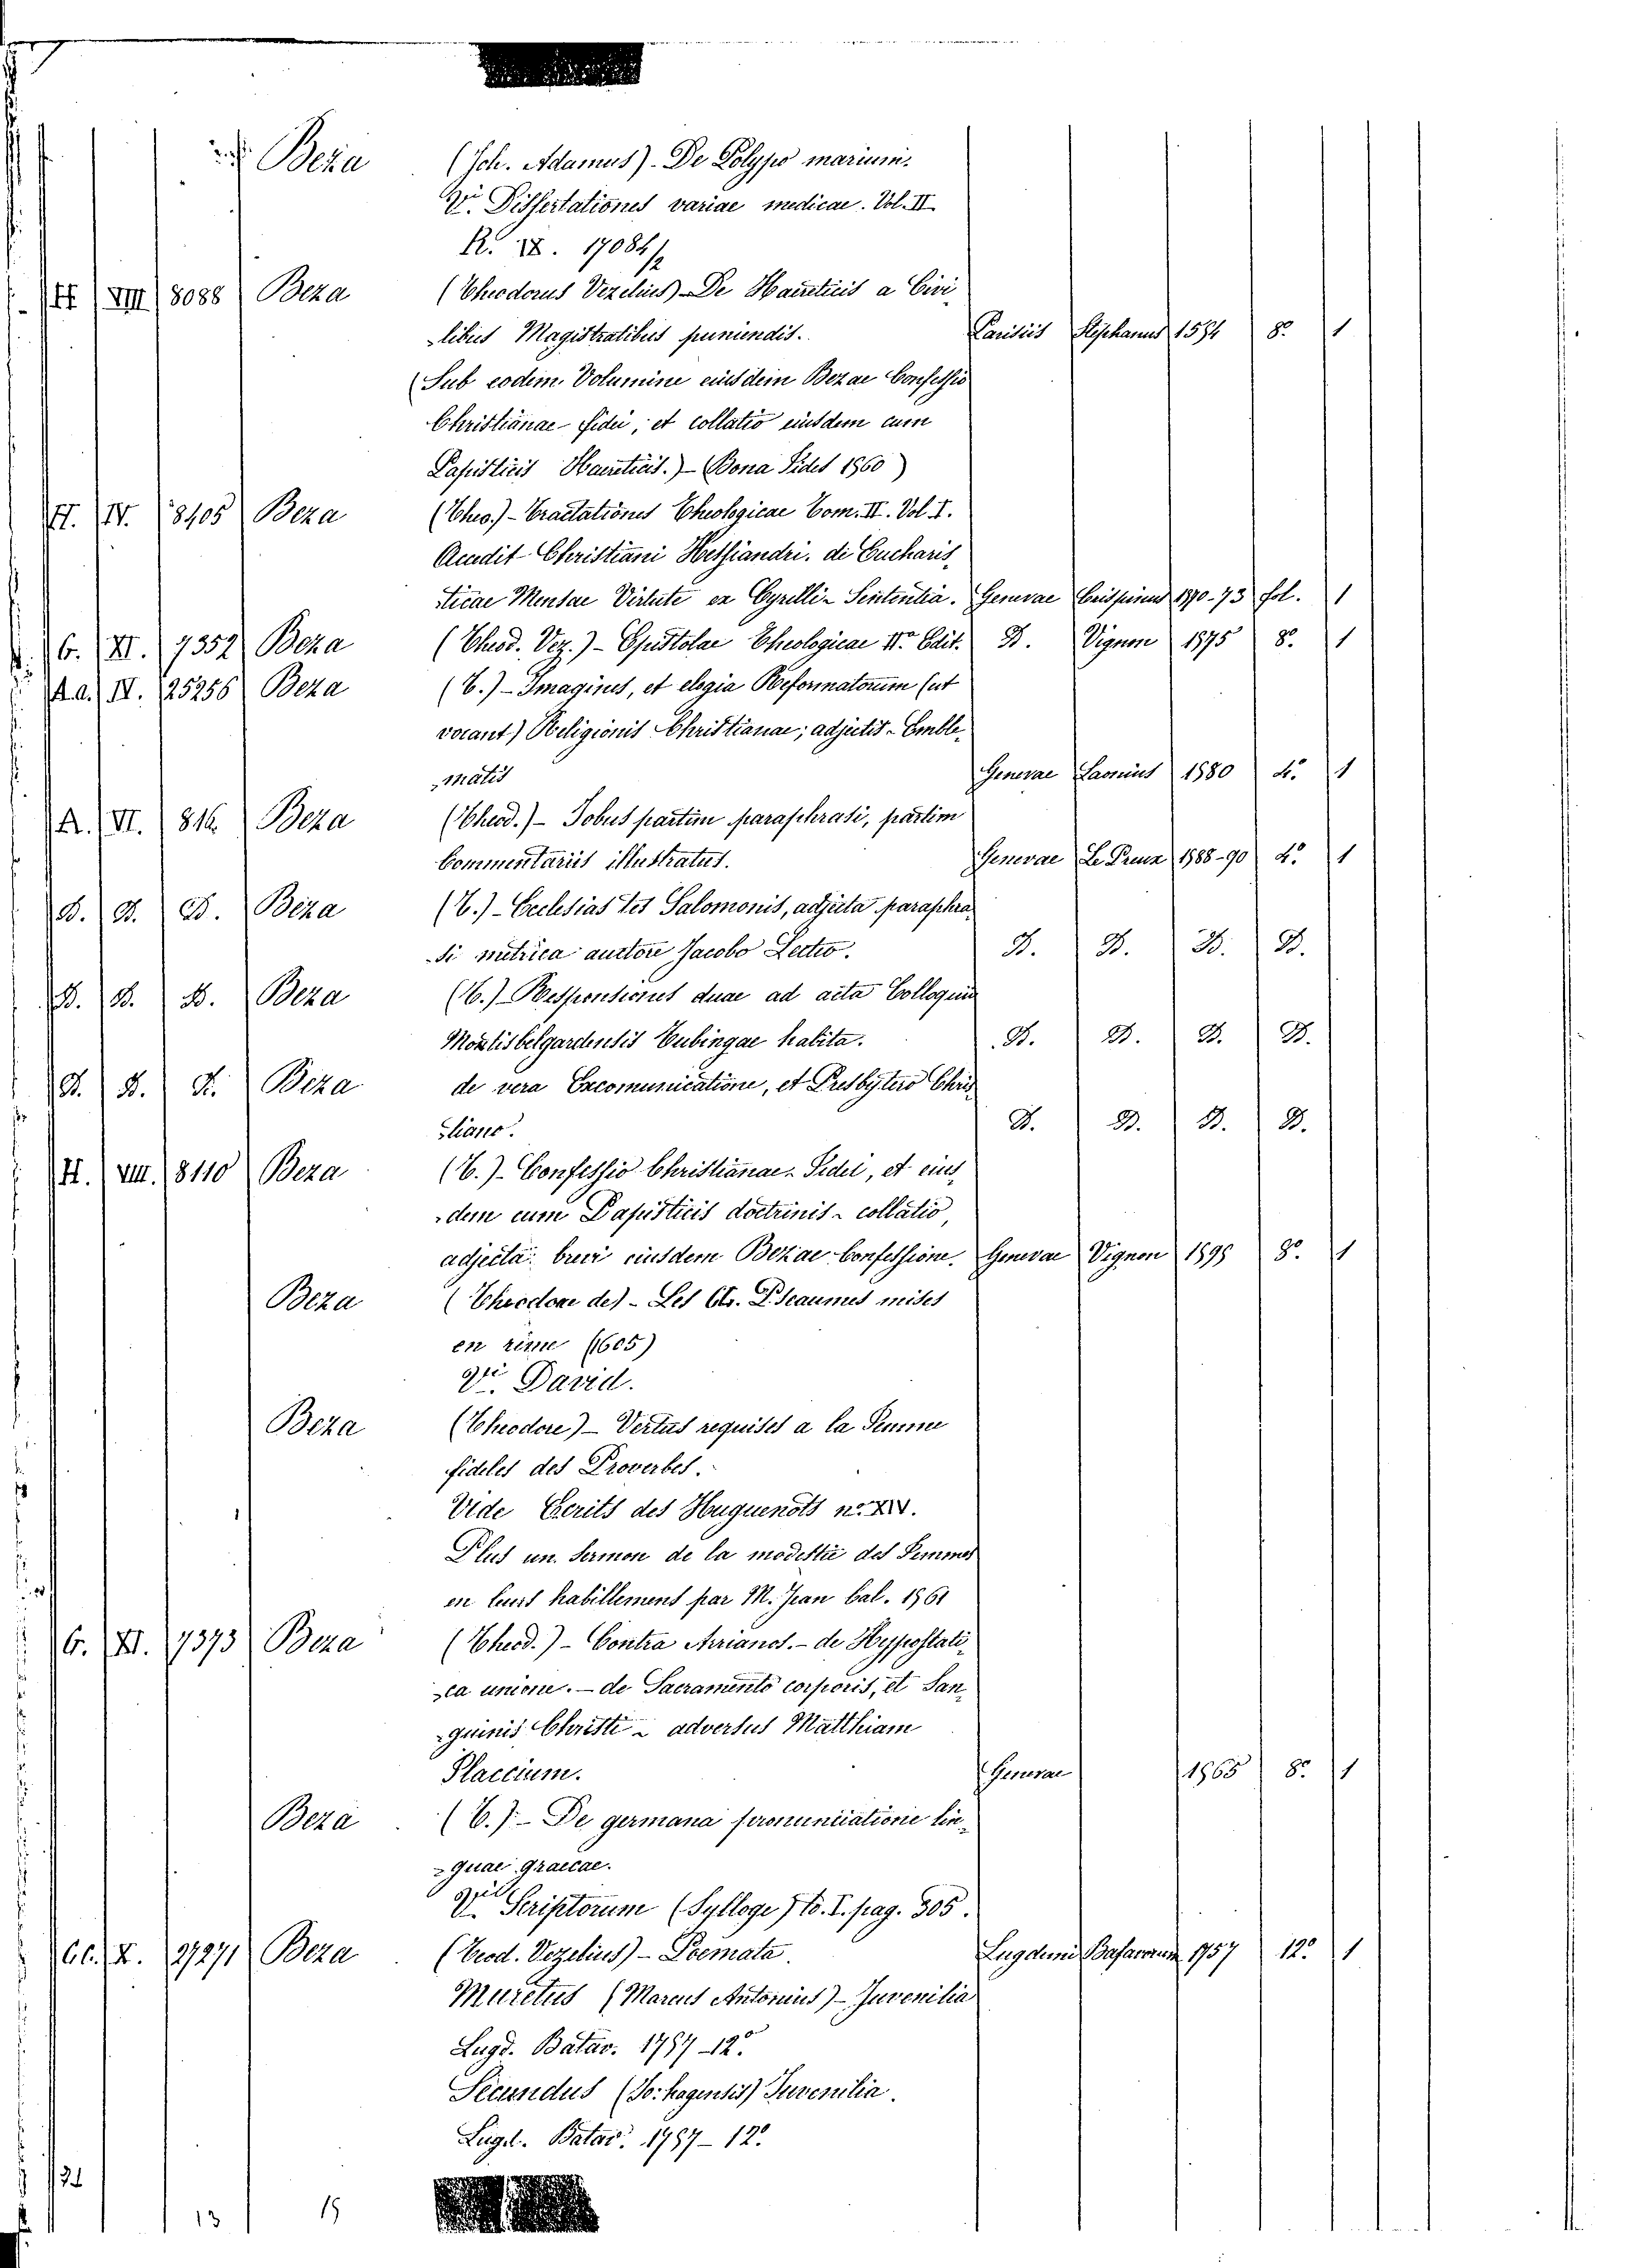 Beza (Joh. Adamus) - De Polypo marium.
Vi. Dissertationes variae medicae. Vol. II
R. IX. 17084/2
H VIII 8088 Beza (Theodorus Vezelius) - De Haereticis a Civi
libus Magistratibus puniendis. Parisiis Stephanus 1594 8.o 1
(Sub eodem Volumine eiusdem Bezae Confessio
Christianae fidei, et collatio eiusdem cum
Papisticis Haereticis.) - (Bona Fides 1560)
H. IV. 8405 Beza (Theo.) - Tractationes Theologicae Tom. II. Vol. I.
Accedit Christiani Hessiandri. de Eucharis
ticae Mensae Virtute ex Cyrilli Sententia. Genevae Crispinus 1570-73 fol. 1
G. XI. 7352 Beza (Theod. Vez.) - Epistolae Theologicae II.a Edit. D. Vignon 1575 8.o 1
A.a. IV. 25256 Beza (T.) - Imagines, et elogia Reformatorum (ut
vocant) Religionis Christianae; adjectis Emble
matis Genevae Laonius 1580 4.o 1
A. VI. 816 Beza (Theod.) - Jobus partim paraphrasi, partim
Commentariis illustratus. Genevae Le Preux 1588-90 4.o 1
D. D. D. Beza (T.) - Ecclesiastes Salomonis, adjecta paraphra
si metrica auctore Jacobo Lectio. D. D. D. D.
D. D. D. Beza (T.) - Responsiones duae ad acta Colloquii
Montisbelgardensis Tubingae habita. D. D. D. D.
D. D. D. Beza de vera Excomunicatione, et Presbyterio Chris
tiano. D. D. D. D.
H. VIII. 8110 Beza (T.) - Confessio Christianae Fidei, et eius
dem cum Papisticis doctrinis collatio,
adjecta brevi eiusdem Bezae Confessione. Genevae Vignon 1595 8.o 1
Beza (Theodore de) - Les CL. Pseaumes mises
en rime (1605)
Vi. David.
Beza (Theodore) - Vertus requises a la Femme
fideles des Proverbes.
Vide Ecrits des Huguenots n.o XV.
Plus un Sermon de la modestie des Femmes
en leurs habillemens par M. Jean Cal. 1561
G. XI. 7373 Beza (Theod.) - Contra Arrianos. - de Hypostati
ca unione. - de Sacramento corporis, et San
guinis Christi adversus Matthiam
Flaccium. Genevae 1565 8.o 1
Beza (T.) - De germana pronunciatione lin
guae graecae.
Vi. Scriptorum (Sylloge) to. I. pag. 305.
CC. X. 27271 Beza (Teod. Vezelius) - Poemata. Lugduni Batavorum 1757 12.o 1
Muretus (Marcus Antonius) - Juvenilia
Lugd. Batav. 1757 - 12.o
Secundus (Jo: hagensis) Juvenilia.
Lugd. Batav. 1757 - 12.o
13 15